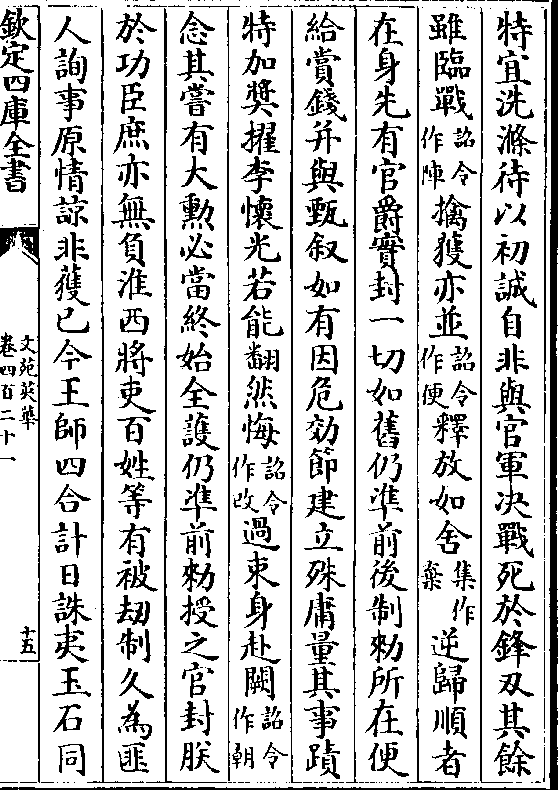 特宜洗滌待以初誠自非與官軍决戰死於鋒刃其餘
雖臨戰詔令作陣擒獲亦並詔令作便釋放如舍集作棄逆歸順者
在身先有官爵實封一切如舊仍準前後制勅所在便
給賞錢并與甄叙如有因危効節建立殊庸量其事蹟
特加奬擢李懷光若能翻然悔詔令作改過束身赴闕詔令作朝
念其嘗有大勳必當終始全護仍凖前勑授之官封朕
於功臣庶亦無負淮西將吏百姓等有被刼制久為匪
人詢事原情諒非獲已今王師四合計日誅夷玉石同
欽定四庫全書
文苑英華
卷四百二十一
十五